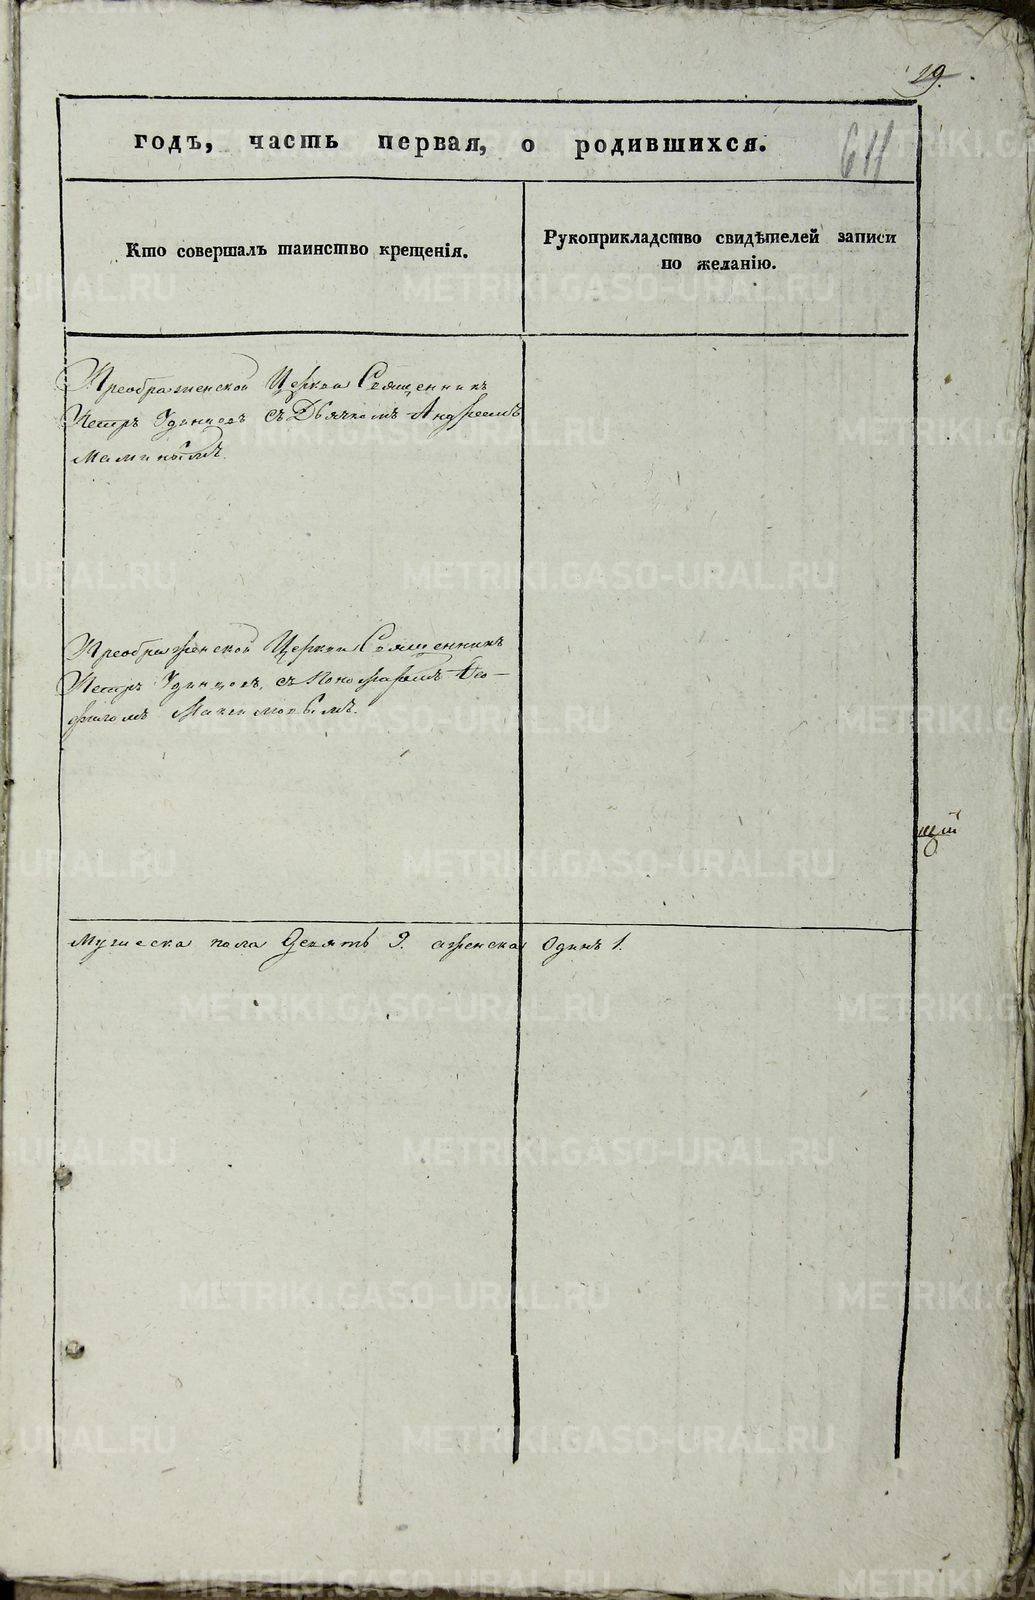 19.
годъ, часть первая, о родившихся.
611
Кто совершалъ таинство крещенія.
Рукоприкладство свидѣтелей записи
по желанію.
Преображенской Церкви Священникъ
Петръ Удинцовъ съ Дьячкомъ Андреемъ
Маминымъ.
Преображенской Церкви Священникъ
Петръ Удинцовъ, съ Пономаремъ Ѳео-
филомъ Максимовымъ.
щій
Мужеска пола Девять 9. а женска Одинъ 1.
METRIKI.GASO-URAL.RU